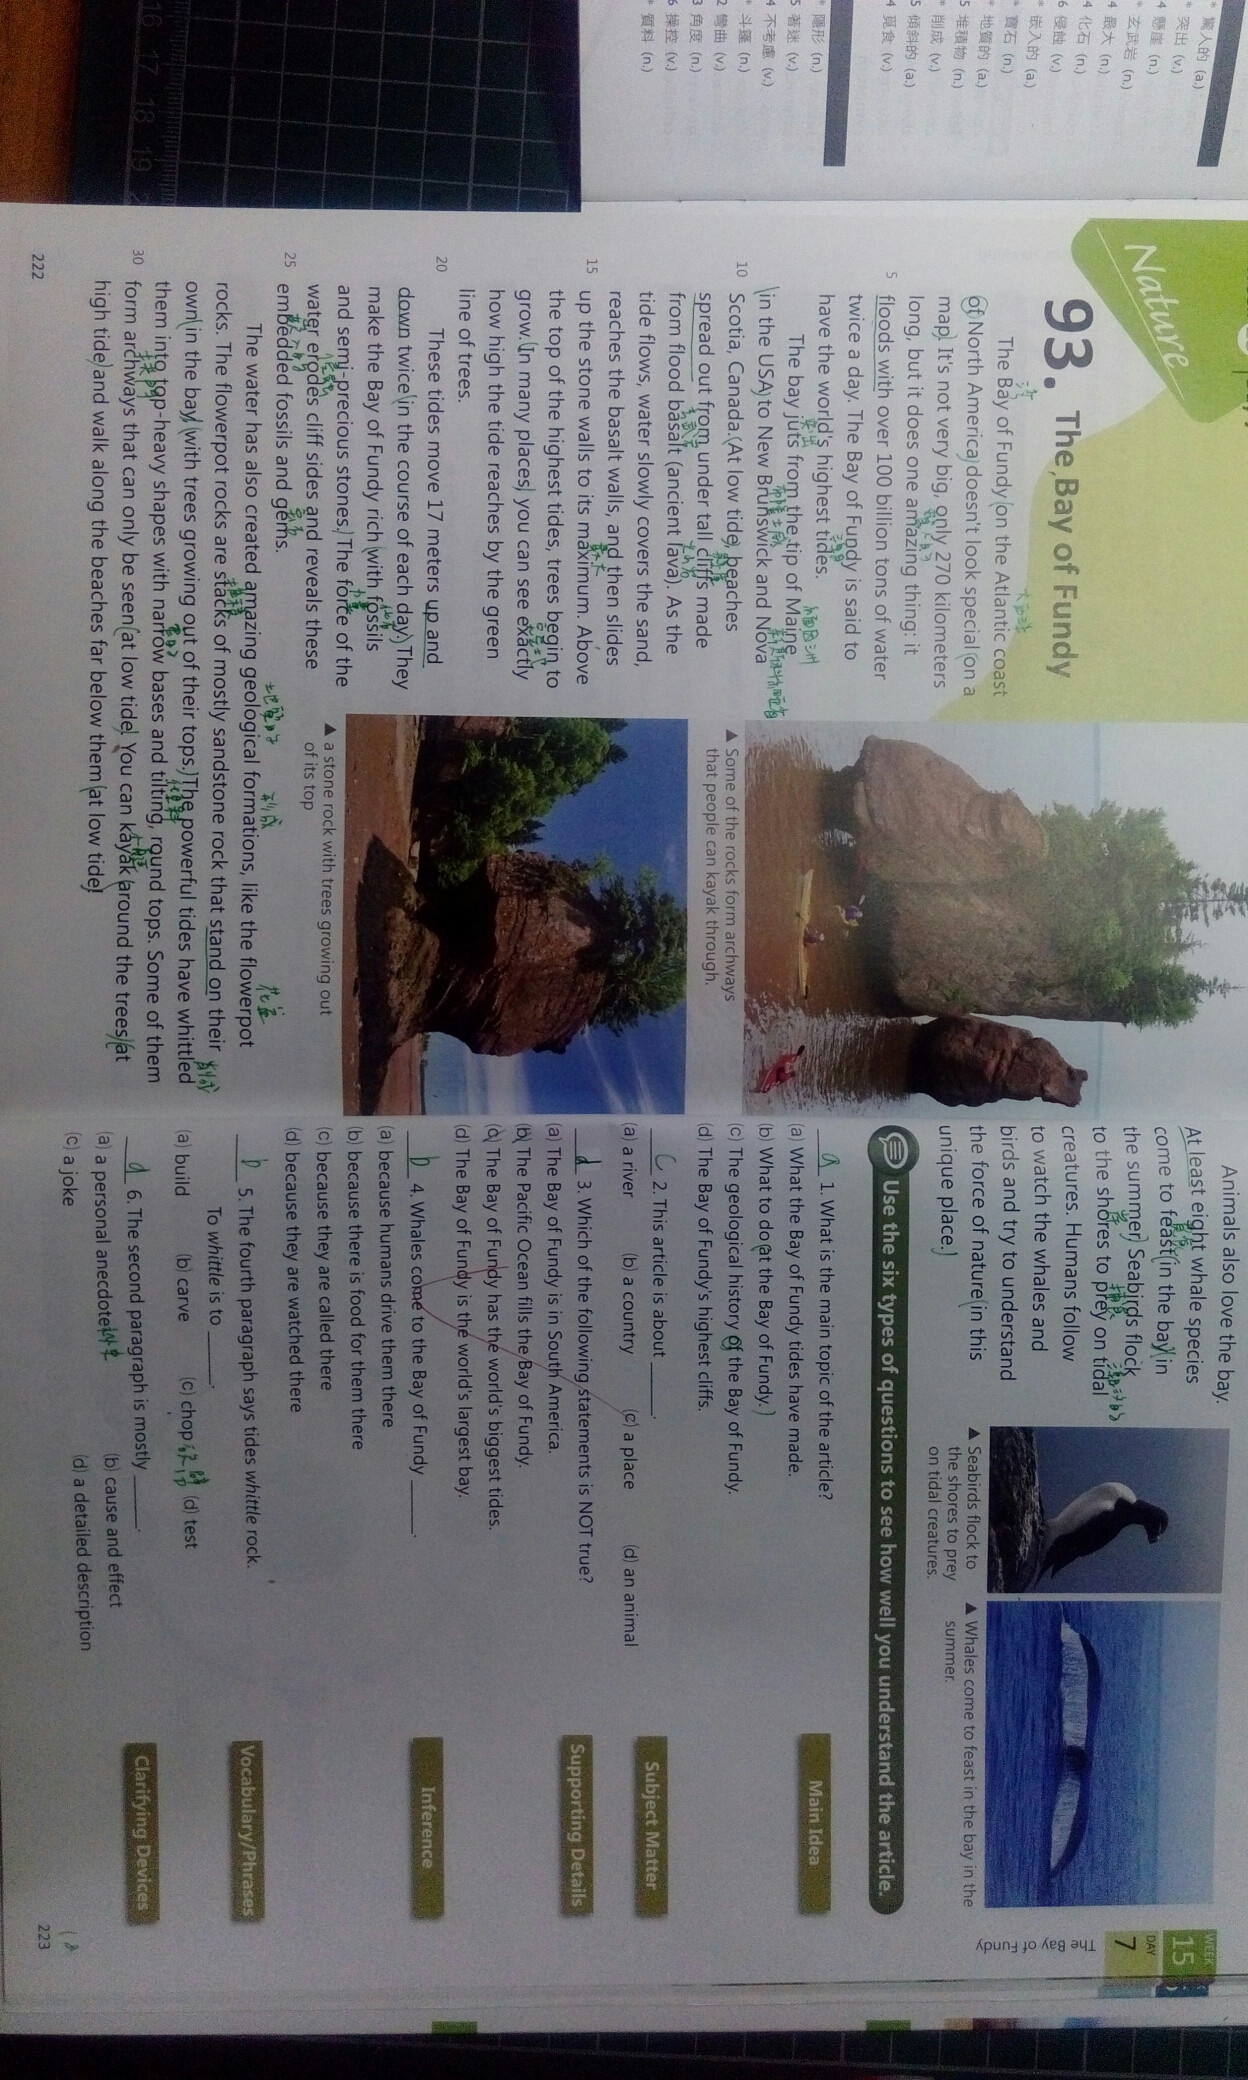 * 驚人的 (a.)
* 突出 (v.)
4 懸崖 (n.)
* 玄武岩 (n.)
4 最大 (n.)
4 化石 (n.)
6 侵蝕 (v.)
* 嵌入的 (a.)
* 寶石 (n.)
* 地質的 (a.)
5 堆積物 (n.)
* 削成 (v.)
5 傾斜的 (a.)
4 覓食 (v.)
* 隱形 (n.)
5 著迷 (v.)
4 不考慮 (v.)
* 斗篷 (n.)
2 彎曲 (v.)
3 角度 (n.)
6 操控 (v.)
* 質料 (n.)
16 17 18 19 2
Nature
93. The Bay of Fundy
The Bay of Fundy on the Atlantic coast
of North America doesn't look special on a
map. It's not very big, only 270 kilometers
long, but it does one amazing thing: it
5 floods with over 100 billion tons of water
twice a day. The Bay of Fundy is said to
have the world's highest tides.
The bay juts from the tip of Maine
in the USA to New Brunswick and Nova
10 Scotia, Canada. At low tide, beaches
spread out from under tall cliffs made
from flood basalt (ancient lava). As the
tide flows, water slowly covers the sand,
reaches the basalt walls, and then slides
15 up the stone walls to its maximum. Above
the top of the highest tides, trees begin to
grow. In many places, you can see exactly
how high the tide reaches by the green
line of trees.
20 These tides move 17 meters up and
down twice in the course of each day. They
make the Bay of Fundy rich with fossils
and semi-precious stones. The force of the
water erodes cliff sides and reveals these
25 embedded fossils and gems.
The water has also created amazing geological formations, like the flowerpot
rocks. The flowerpot rocks are stacks of mostly sandstone rock that stand on their
own in the bay, with trees growing out of their tops. The powerful tides have whittled
them into top-heavy shapes with narrow bases and tilting, round tops. Some of them
30 form archways that can only be seen at low tide. You can kayak around the trees at
high tide and walk along the beaches far below them at low tide!
▲ Some of the rocks form archways
that people can kayak through.
▲ a stone rock with trees growing out
of its top
222
Animals also love the bay.
At least eight whale species
come to feast in the bay in
the summer. Seabirds flock
to the shores to prey on tidal
creatures. Humans follow
to watch the whales and
birds and try to understand
the force of nature in this
unique place.
▲ Seabirds flock to
the shores to prey
on tidal creatures.
▲ Whales come to feast in the bay in the
summer.
WEEK
15
DAY
7
The Bay of Fundy
Use the six types of questions to see how well you understand the article.
a 1. What is the main topic of the article?
(a) What the Bay of Fundy tides have made.
(b) What to do at the Bay of Fundy.
(c) The geological history of the Bay of Fundy.
(d) The Bay of Fundy's highest cliffs.
Main Idea
c 2. This article is about ______.
(a) a river (b) a country (c) a place (d) an animal
Subject Matter
d 3. Which of the following statements is NOT true?
(a) The Bay of Fundy is in South America.
(b) The Pacific Ocean fills the Bay of Fundy.
(c) The Bay of Fundy has the world's biggest tides.
(d) The Bay of Fundy is the world's largest bay.
Supporting Details
b 4. Whales come to the Bay of Fundy ______.
(a) because humans drive them there
(b) because there is food for them there
(c) because they are called there
(d) because they are watched there
Inference
b 5. The fourth paragraph says tides whittle rock.
To whittle is to ______.
(a) build (b) carve (c) chop (d) test
Vocabulary/Phrases
d 6. The second paragraph is mostly ______.
(a) a personal anecdote (b) cause and effect
(c) a joke (d) a detailed description
Clarifying Devices
223